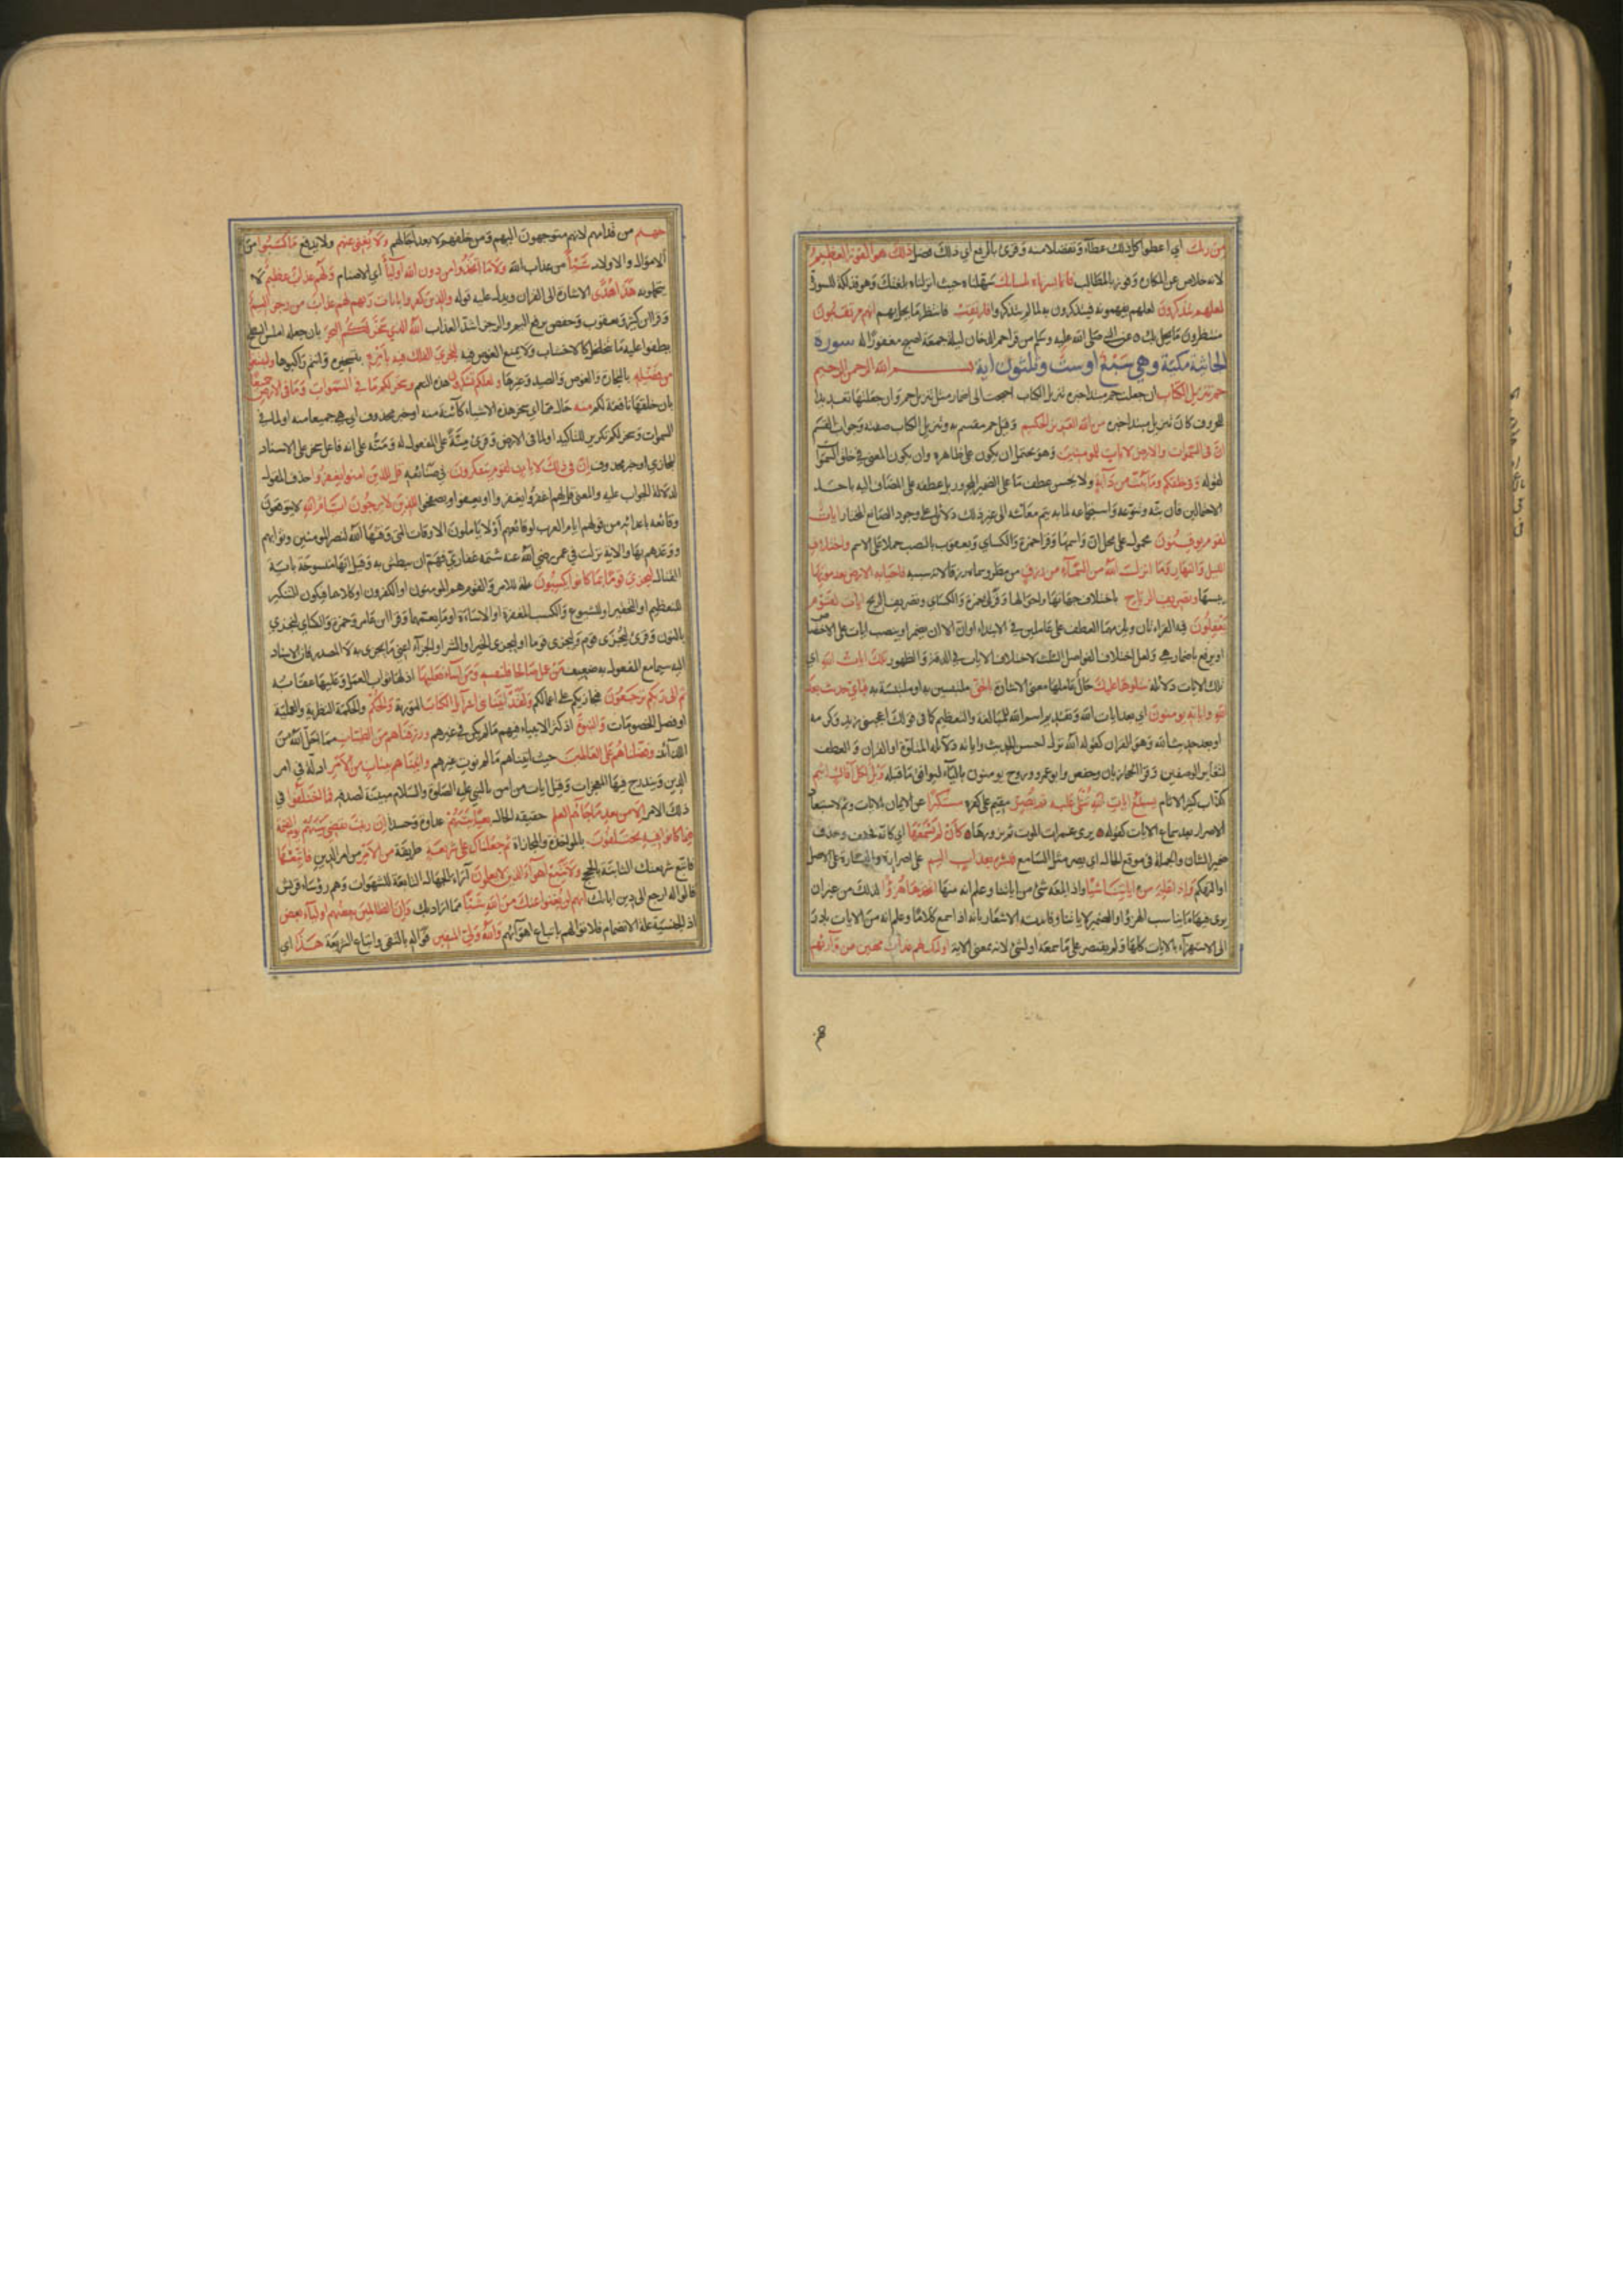 من ربك اي اعطوا كل ذلك عطاء وتفضلا منه وقرئ بالرفع اي ذلك فضل ذلك هو الفوز العظيم
لانه خلاص عن المكاره وفوز بالمطالب فانما يسرناه بلسانك سهلناه حيث انزلناه بلغتك وهو فذلكة للسورة
لعلهم يتذكرون لعلهم يفهمونه فيتذكرون به لما لم يتذكروا فارتقب فانتظر ما يحل بهم انهم مرتقبون
منتظرون ما يحل بك عن النبي صلى الله عليه وسلم من قرا حم الدخان ليلة جمعة اصبح مغفورا له سورة
الجاثية مكية وهي سبع او ست وثلثون اية بسم الله الرحمن الرحيم
حم تنزيل الكتاب ان جعلت حم مبتدا خبره تنزيل الكتاب احتجت الى اضمار مثل تنزيل حم وان جعلتها تعديدا
للحروف كان تنزيل مبتدا خبره من الله العزيز الحكيم وقيل حم مقسم به وتنزيل الكتاب صفته وجواب القسم
ان في السموات والارض لايات للمومنين وهو يحتمل ان يكون على ظاهره وان يكون المعنى في خلق السموات
لقوله وفي خلقكم وما يبث من دابة ولا يحسن عطف ما على الضمير المجرور بل عطفه على المضاف اليه باحد
الاحتمالين فان بثه وتنوعه واستجماعه لما به يتم معاشه الى غير ذلك دلائل على وجود الصانع المختار ايات
لقوم يوقنون محمول على محل ان واسمها وقرا حمزة والكسائي ويعقوب بالنصب حملا على الاسم واختلاف
الليل والنهار وما انزل الله من السماء من رزق من مطر وسماه رزقا لانه سببه فاحيا به الارض بعد موتها
يبسها وتصريف الرياح باختلاف جهاتها واحوالها وقرا حمزة والكسائي وتصريف الريح ايات لقوم
يعقلون فيه القراءتان ويلزمهما العطف على عاملين في الابتداء او ان الا ان يضمر في او ينصب ايات على الاختصاص
او يرفع باضمار هي ولعل اختلاف الفواصل الثلث لاختلاف الايات في الدقة والظهور تلك ايات الله اي
تلك الايات دلائله نتلوها عليك حال عاملها معنى الاشارة بالحق ملتبسين به او ملتبسة به فباي حديث بعد
الله واياته يومنون اي بعد ايات الله وتقديم اسم الله للمبالغة والتعظيم كما في قولك اعجبني زيد وكرمه
او بعد حديث الله وهو القران كقوله الله نزل احسن الحديث واياته دلائله المتلوة او القران والعطف
لتغاير الوصفين وقرا الحجازيان وحفص وابو عمرو وروح يومنون بالياء ليوافق ما قبله ويل لكل افاك اثيم
كذاب كثير الاثام يسمع ايات الله تتلى عليه ثم يصر يقيم على كفره مستكبرا عن الايمان بالايات وثم لاستبعاد
الاصرار بعد سماع الايات كقوله يرى غمرات الموت ثم يزورها كان لم يسمعها اي كانه فخفف وحذف
ضمير الشان والجملة في موقع الحال اي يصر مثل غير السامع فبشره بعذاب اليم على اصراره والبشارة على الاصل
او التهكم واذا علم من اياتنا شيئا واذا بلغه شئ من اياتنا وعلم انه منها اتخذها هزوا لذلك من غير ان
يرى فيها ما يناسب الهزؤ والضمير لاياتنا وفائدته الاشعار بانه اذا سمع كلاما وعلم انه من الايات بادر
الى الاستهزاء بالايات كلها ولم يقتصر على ما سمعه او لشئ لانه بمعنى الاية اولئك لهم عذاب مهين من ورائهم
جهنم من قدامهم لانهم متوجهون اليهم ومن خلفهم لانه بعد اجالهم ولا يغني عنهم ولا يدفع ما كسبوا من
الاموال والاولاد شيئا من عذاب الله ولا ما اتخذوا من دون الله اولياء اي الاصنام ولهم عذاب عظيم لا
يتحملونه هذا هدى الاشارة الى القران ويدل عليه قوله والذين كفروا بايات ربهم لهم عذاب من رجز اليم
وقرا ابن كثير ويعقوب وحفص برفع اليم والرجز اشد العذاب الله الذي سخر لكم البحر بان جعله املس السطح
يطفوا عليه ما يتخلخل كالاخشاب ولا يمنع الغوص فيه لتجري الفلك فيه بامره بتسخيره وانتم راكبوها ولتبتغوا
من فضله بالتجارة والغوص والصيد وغيرها ولعلكم تشكرون هذه النعم وسخر لكم ما في السموات وما في الارض جميعا
بان خلقها نافعة لكم منه حال مما اي سخر هذه الاشياء كائنة منه او خبر محذوف اي هي جميعا منه او لما في
السموات وسخر لكم تكرير للتاكيد او لما في الارض وقرئ منة على المفعول له ومنه على انه فاعل سخر على الاسناد
المجازي او خبر محذوف ان في ذلك لايات لقوم يتفكرون في صنائعه قل للذين امنوا يغفروا حذف المقول
لدلالة الجواب عليه والمعنى قل لهم اغفروا يغفروا اي يعفوا ويصفحوا للذين لا يرجون ايام الله لا يتوقعون
وقائعه باعدائه من قولهم ايام العرب لوقائعهم او لا ياملون الاوقات التي وقتها الله لنصر المومنين وثوابهم
ووعدهم بها والاية نزلت في عمر رضي الله عنه شتمه غفاري فهم ان يبطش به وقيل انها منسوخة باية
القتال ليجزي قوما بما كانوا يكسبون علة للامر والقوم هم المومنون او الكفرون او كلاهما فيكون التنكير
للتعظيم او التحقير او الشيوع والكسب المغفرة او الاساءة او ما يعمهما وقرا ابن عامر وحمزة والكسائي لنجزي
بالنون وقرئ ليجزى قوم وليجزى قوما اي ليجزى الخير او الشر او الجزاء اعني ما يجزى به لا المصدر فان الاسناد
اليه سيما مع المفعول به ضعيف من عمل صالحا فلنفسه ومن اساء فعليها اذ لها ثواب العمل وعليها عقابه
ثم الى ربكم ترجعون فيجازيكم على اعمالكم ولقد اتينا بني اسرائيل الكتاب التورية والحكم والحكمة النظرية والعملية
او فصل الخصومات والنبوة اذ كثر الانبياء فيهم ما لم يكن في غيرهم ورزقناهم من الطيبات مما احل الله من
اللذائذ وفضلناهم على العالمين حيث اتيناهم ما لم نوت غيرهم واتيناهم بينات من الامر ادلة في امر
الدين ويندرج فيها المعجزات وقيل ايات من امر النبي عليه الصلوة والسلام مبينة لصدقه فما اختلفوا في
ذلك الامر الا من بعد ما جاءهم العلم حقيقة الحال بغيا بينهم عداوة وحسدا ان ربك يقضي بينهم يوم القيمة
فيما كانوا فيه يختلفون بالمؤاخذة والمجازاة ثم جعلناك على شريعة طريقة من الامر من امر الدين فاتبعها
فاتبع شريعتك الثابتة بالحجج ولا تتبع اهواء الذين لا يعلمون اراء الجهال التابعة للشهوات وهم رؤساء قريش
قالوا له ارجع الى دين ابائك انهم لن يغنوا عنك من الله شيئا مما اراد بك وان الظالمين بعضهم اولياء بعض
اذ الجنسية علة الانضمام فلا توالهم باتباع اهوائهم والله ولي المتقين فواله بالتقى واتباع الشريعة هذا اي